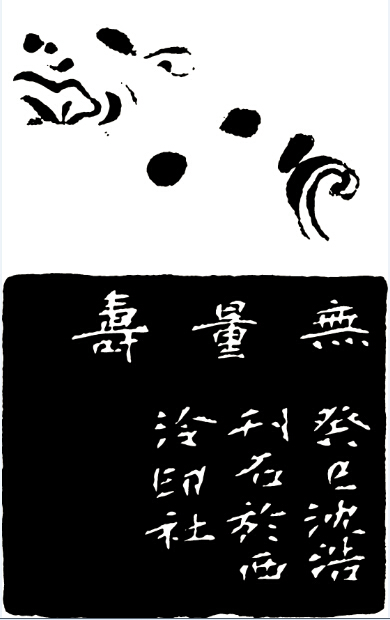 無量壽
癸巳沈浩
刊石於西
泠印社